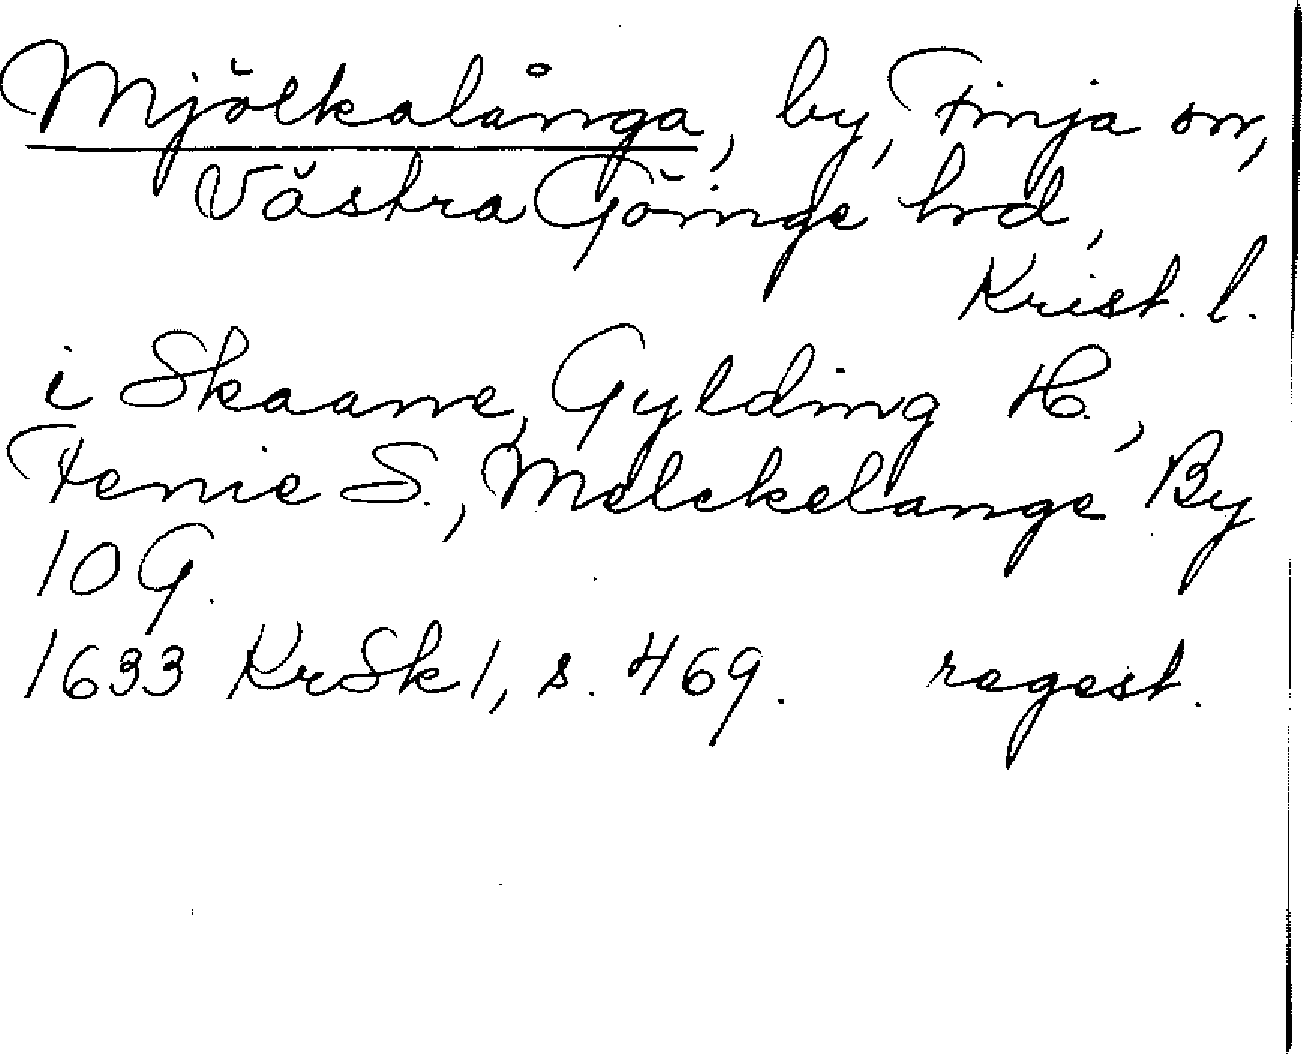 Mjölkalånga, by, Finja sn,
Västra Göinge hrd,
Krist. l.
i Skaane, Gylding H.,
Fenie S., Melckelange By
10 G.
1633 KrSk 1, s. 469. regest.